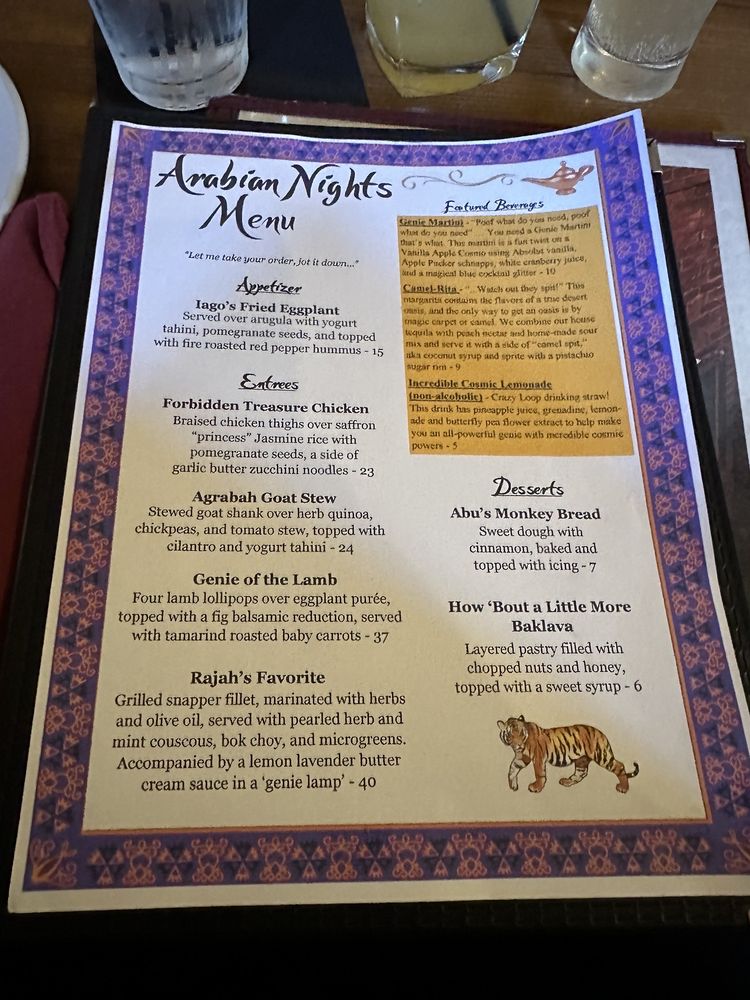 Arabian Nights
Menu
"Let me take your order, jot it down..."
Appetizer
Iago's Fried Eggplant
Served over arugula with yogurt
tahini, pomegranate seeds, and topped
with fire roasted red pepper hummus - 15
Entrees
Forbidden Treasure Chicken
Braised chicken thighs over saffron
"princess" Jasmine rice with
pomegranate seeds, a side of
garlic butter zucchini noodles - 23
Agrabah Goat Stew
Stewed goat shank over herb quinoa,
chickpeas, and tomato stew, topped with
cilantro and yogurt tahini - 24
Genie of the Lamb
Four lamb lollipops over eggplant purée,
topped with a fig balsamic reduction, served
with tamarind roasted baby carrots - 37
Rajah's Favorite
Grilled snapper fillet, marinated with herbs
and olive oil, served with pearled herb and
mint couscous, bok choy, and microgreens.
Accompanied by a lemon lavender butter
cream sauce in a 'genie lamp' - 40
Featured Beverages
Genie Martini - "Poof what do you need, poof
what do you need" ... You need a Genie Martini
that's what. This martini is a fun twist on a
Vanilla Apple Cosmo using Absolut vanilla,
Apple Pucker schnapps, white cranberry juice,
and a magical blue cocktail glitter - 10
Camel-Rita - "...Watch out they spit!" This
margarita contains the flavors of a true desert
oasis, and the only way to get an oasis is by
magic carpet or camel. We combine our house
tequila with peach nectar and home-made sour
mix and serve it with a side of "camel spit,"
aka coconut syrup and sprite with a pistachio
sugar rim - 9
Incredible Cosmic Lemonade
(non-alcoholic) - Crazy Loop drinking straw!
This drink has pineapple juice, grenadine, lemon-
ade and butterfly pea flower extract to help make
you an all-powerful genie with incredible cosmic
powers - 5
Desserts
Abu's Monkey Bread
Sweet dough with
cinnamon, baked and
topped with icing - 7
How 'Bout a Little More
Baklava
Layered pastry filled with
chopped nuts and honey,
topped with a sweet syrup - 6